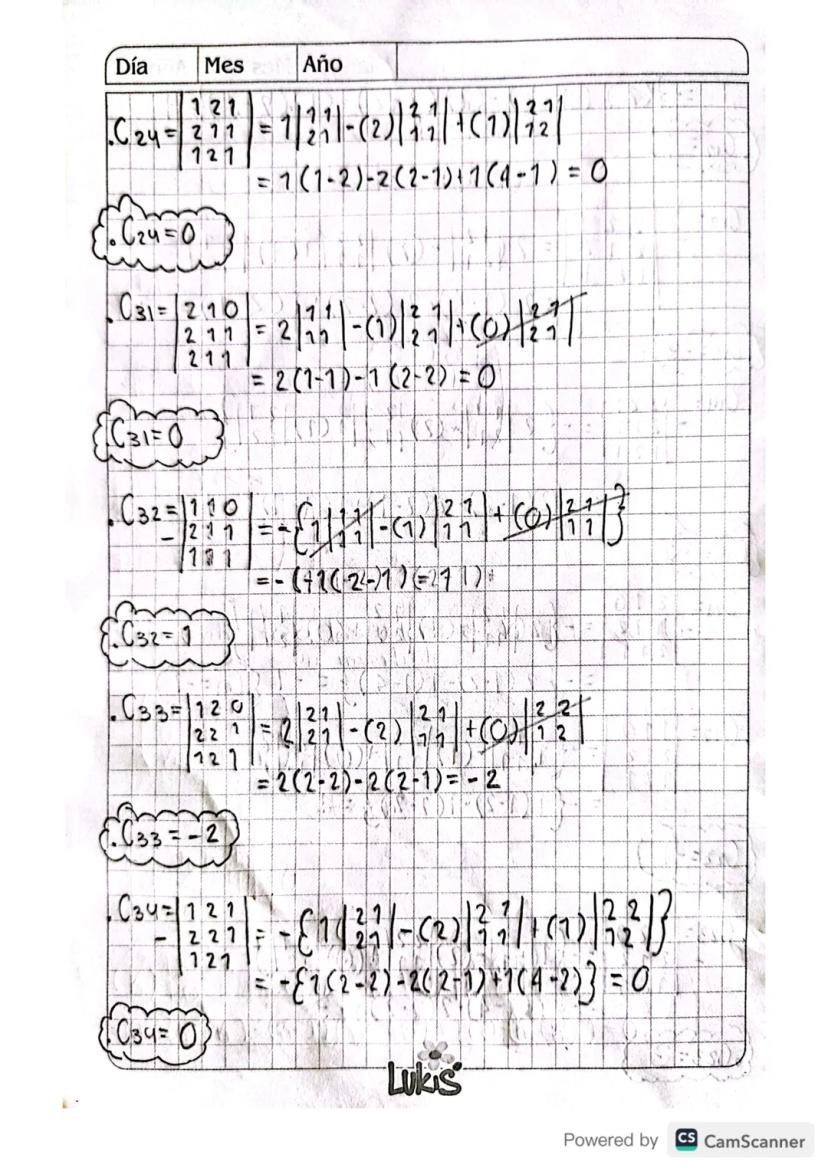 Día Mes Año
.C24 = |1 2 1| = 1|1 1| - (2)|2 1| + (1)|2 1|
|2 1 1| |2 1| |1 1| |1 2|
|1 2 1|
= 1(1-2)-2(2-1)+1(4-1) = 0
. C24 = 0
.C31 = |2 1 0| = 2|1 1| - (1)|2 1| + (0)|2 1|
|2 1 1| |1 1| |2 1| |2 1|
|2 1 1|
= 2(1-1)-1(2-2) = 0
.C31 = 0
.C32 = |1 1 0| = -{1|1 1| - (1)|2 1| + (0)|2 1|}
- |2 1 1| |1 1| |1 1| |1 1|
|1 1 1|
= - (
.C32 = 1
.C33 = |1 2 0| = 2|2 1| - (2)|2 1| + (0)|2 2|
|2 2 1| |2 1| |1 1| |1 2|
|1 2 1|
= 2(2-2)-2(2-1) = -2
.C33 = -2
.C34 = |1 2 1| = -{1(|2 1| - (2)|2 1| + (1)|2 2|}
- |2 2 1| |2 1| |1 1| |1 2|
|1 2 1|
= -{1(2-2)-2(2-1)+1(4-2)} = 0
.C34 = 0
Lukis
Powered by CS CamScanner